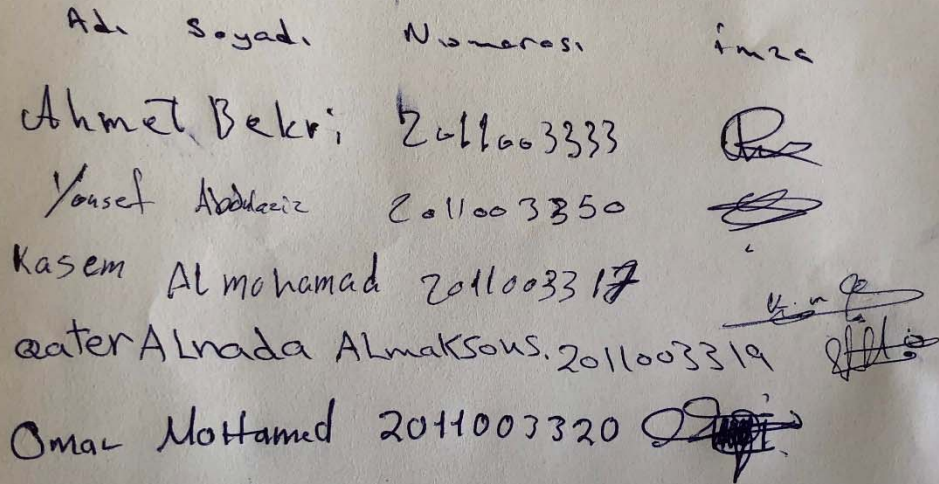 Adı Soyadı Numarası imza
Ahmet Bekri 2011003333
Yousef Abdulaziz 2011003350
Kasem Almohamad 2011003317
QaterALnada ALmaksous. 2011003319
Omar Mohamed 2011003320